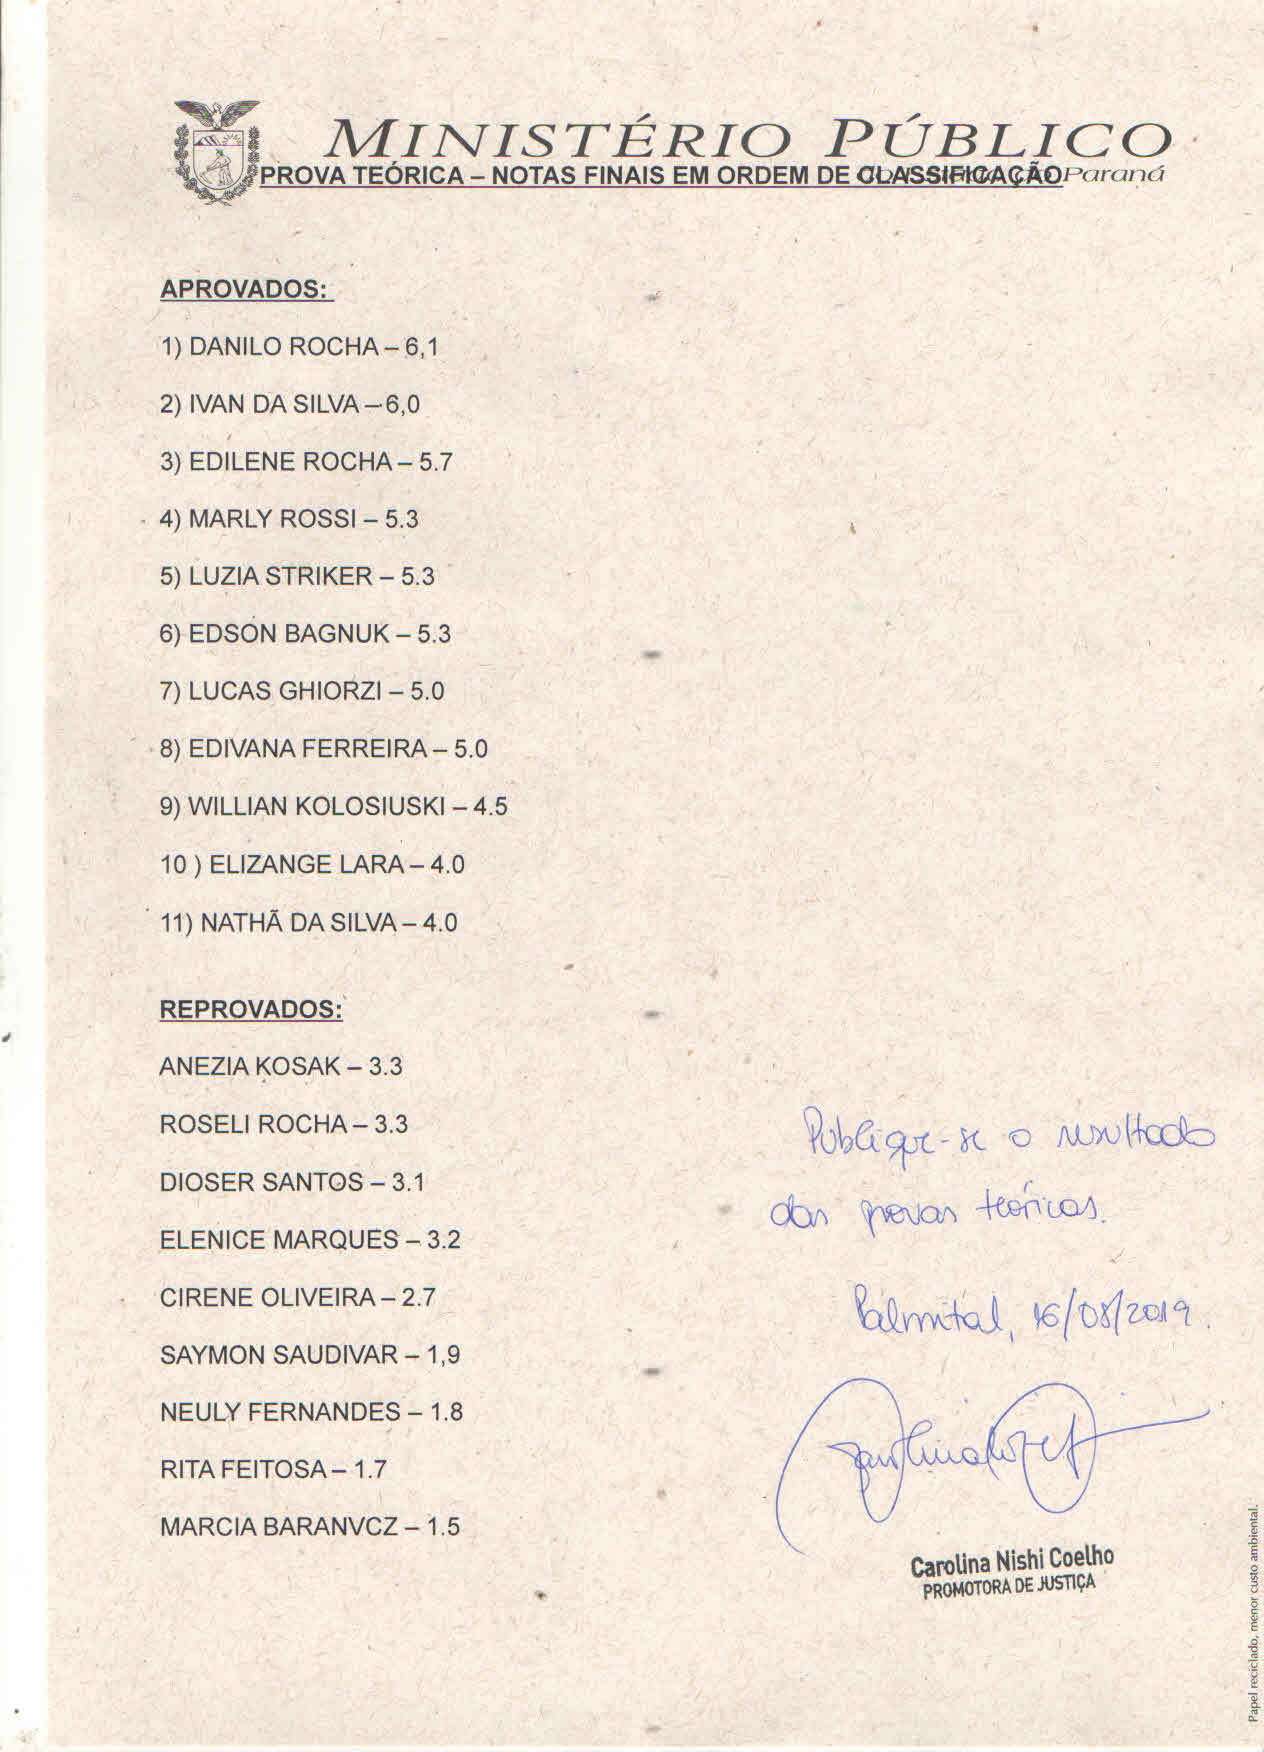 MINISTÉRIO PÚBLICO
PROVA TEÓRICA – NOTAS FINAIS EM ORDEM DE CLASSIFICAÇÃO
Paraná
APROVADOS:
1) DANILO ROCHA – 6,1
2) IVAN DA SILVA – 6,0
3) EDILENE ROCHA – 5.7
4) MARLY ROSSI – 5.3
5) LUZIA STRIKER – 5.3
6) EDSON BAGNUK – 5.3
7) LUCAS GHIORZI – 5.0
8) EDIVANA FERREIRA – 5.0
9) WILLIAN KOLOSIUSKI – 4.5
10 ) ELIZANGE LARA – 4.0
11) NATHÃ DA SILVA – 4.0
REPROVADOS:
ANEZIA KOSAK – 3.3
ROSELI ROCHA – 3.3
DIOSER SANTOS – 3.1
ELENICE MARQUES – 3.2
CIRENE OLIVEIRA – 2.7
SAYMON SAUDIVAR – 1,9
NEULY FERNANDES – 1.8
RITA FEITOSA – 1.7
MARCIA BARANVCZ – 1.5
Publique-se o resultado
das provas teóricas.
Palmital, 16/08/2019.
Carolina Nishi Coelho
PROMOTORA DE JUSTIÇA
Papel reciclado, menor custo ambiental.